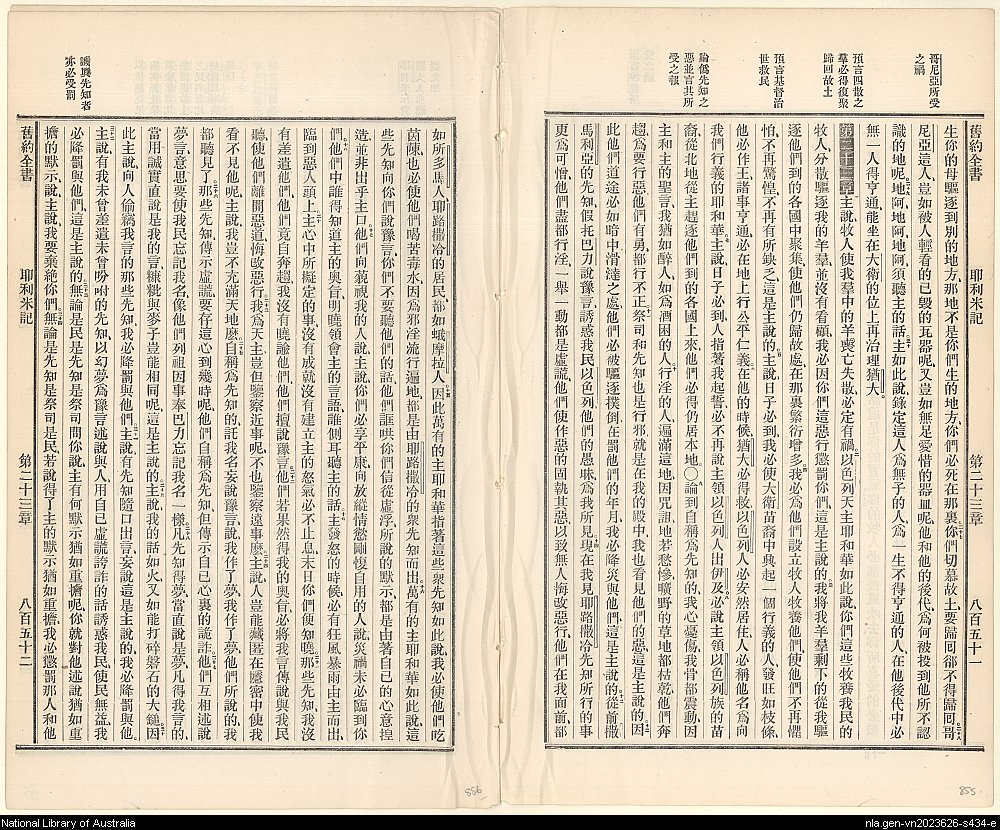 哥尼亞所受
之禍
預言四散之
羣必得復聚
歸回故土
預言基督治
世救民
論僞先知之
惡並言其所
受之報
舊約全書
耶利米記
第二十三章
八百五十一
生你的母驅逐到別的地方那地不是你們生的地方你們必死在那裏你們切慕故土要歸回卻不得歸回哥
尼亞這人豈如被人輕看的已毀的瓦器呢又豈如無足愛惜的器皿呢他和他的後代爲何被投到他所不認
識的地呢地阿地阿地阿須聽主的話主如此說錄定這人爲無子的人爲一生不得亨通的人在他後代中必
無一人得亨通能坐在大衛的位上再治理猶大
第二十三章主說牧人使我羣中的羊喪亡失散必定有禍以色列天主耶和華如此說你們這些牧養我民的
牧人分散驅逐我的羊羣並沒有看顧我必因你們這惡行懲罰你們這是主說的我將我羊羣剩下的從我驅
逐他們到的各國中聚集使他們仍歸故處在那裏繁衍增多我必爲他們設立牧人牧養他們使他們不再懼
怕不再驚惶不再有所缺乏這是主說的主說日子必到我必使大衛苗裔中興起一個行義的人發旺如枝條
他必作王諸事亨通必在地上行公平仁義在他的時候猶大必得救以色列人必安然居住人必稱他名爲向
我們行義的耶和華主說日子必到人指著我起誓必不再說主領以色列人出伊及必說主領以色列族的苗
裔從北地從主趕逐他們到的各國上來他們必得仍居本地〇論到自稱爲先知的我心憂傷我骨都震動因
主和主的聖言我猶如醉人如爲酒困的人行淫的人遍滿這地因咒詛地若愁慘曠野的草地都枯乾他們奔
趨爲要行惡他們有勇都行不正祭司和先知也是行邪就是在我的殿中我也看見他們的惡這是主說的因
此他們道途必如暗中滑澾之處他們必被驅逐撲倒在罰他們的年月我必降災與他們這是主說的從前撒
馬利亞的先知假托巴力說豫言誘惑我民以色列他們的愚昧爲我所見現在我見耶路撒冷先知所行的事
更爲可憎他們盡都行淫一舉一動都是虛謊他們使作惡的固執其惡以致無人悔改惡行他們在我面前都
譏誚先知者
亦必受罰
如所多馬人耶路撒冷的居民都如蛾摩拉人因此萬有的主耶和華指著這些衆先知如此說我必使他們吃
茵蔯也必使他們喝苦毒水因爲邪淫流行遍地都是由耶路撒冷的衆先知而出萬有的主耶和華如此說這
些先知向你們說豫言你們不要聽他們的話他們誑哄你們信從虛浮所說的默示都是由著自已的心意揑
造並非出乎主口他們向藐視我的人說主說你們必享平康向放縱情慾剛愎自用的人說災禍未必臨到你
們他們中誰得知道主的奧旨明曉領會主的言語誰側耳聽主的話主發怒的時候必有狂風暴雨由主而出
臨到惡人頭上主心中所擬定的事沒有成就沒有建立主的怒氣必不止息末日你們便知曉那些先知我沒
有差遣他們他們竟自奔趨我沒有曉諭他們他們擅說豫言他們若果然得我的奧旨必將我言傳說與我民
聽使他們離開惡道悔改惡行我爲天主豈但鑒察近事呢不也鑒察遠事麽主說人豈能藏匿在隱密中使我
看不見他呢主說我豈不充滿天地麽自稱爲先知的託我名妄說豫言說我作了夢我作了夢他們所說的我
都聽見了那些先知傳示虛謊要存這心到幾時呢他們自稱爲先知但傳示自已心裏的詭詐他們互相述說
夢言意思要使我民忘記我名像他們列祖因事奉巴力忘記我名一樣凡先知得夢當直說是夢凡得我言的
當用誠實直說是我的言糠粃與麥子豈能相同呢這是主說的主說我的話如火又如能打碎磐石的大鎚因
此主說向人偷竊我言的那些先知我必降罰與他們主說有先知隨口出言妄說這是主說的我必降罰與他
主說有我未曾差遣未曾吩咐的先知以幻夢爲豫言述說與人用自已虛謊誇詐的話誘惑我民使民無益我
必降罰與他們這是主說的無論是民是先知是祭司問你說主有何默示猶如重擔呢你就對他述說猶如重
擔的默示主說我要棄絶你們無論是先知是祭司是民若說得了主的默示猶如重擔我必懲罰那人和他
舊約全書
耶利米記
第二十三章
八百五十二
856
855
National Library of Australia
nla.gen-vn2023626-s434-e